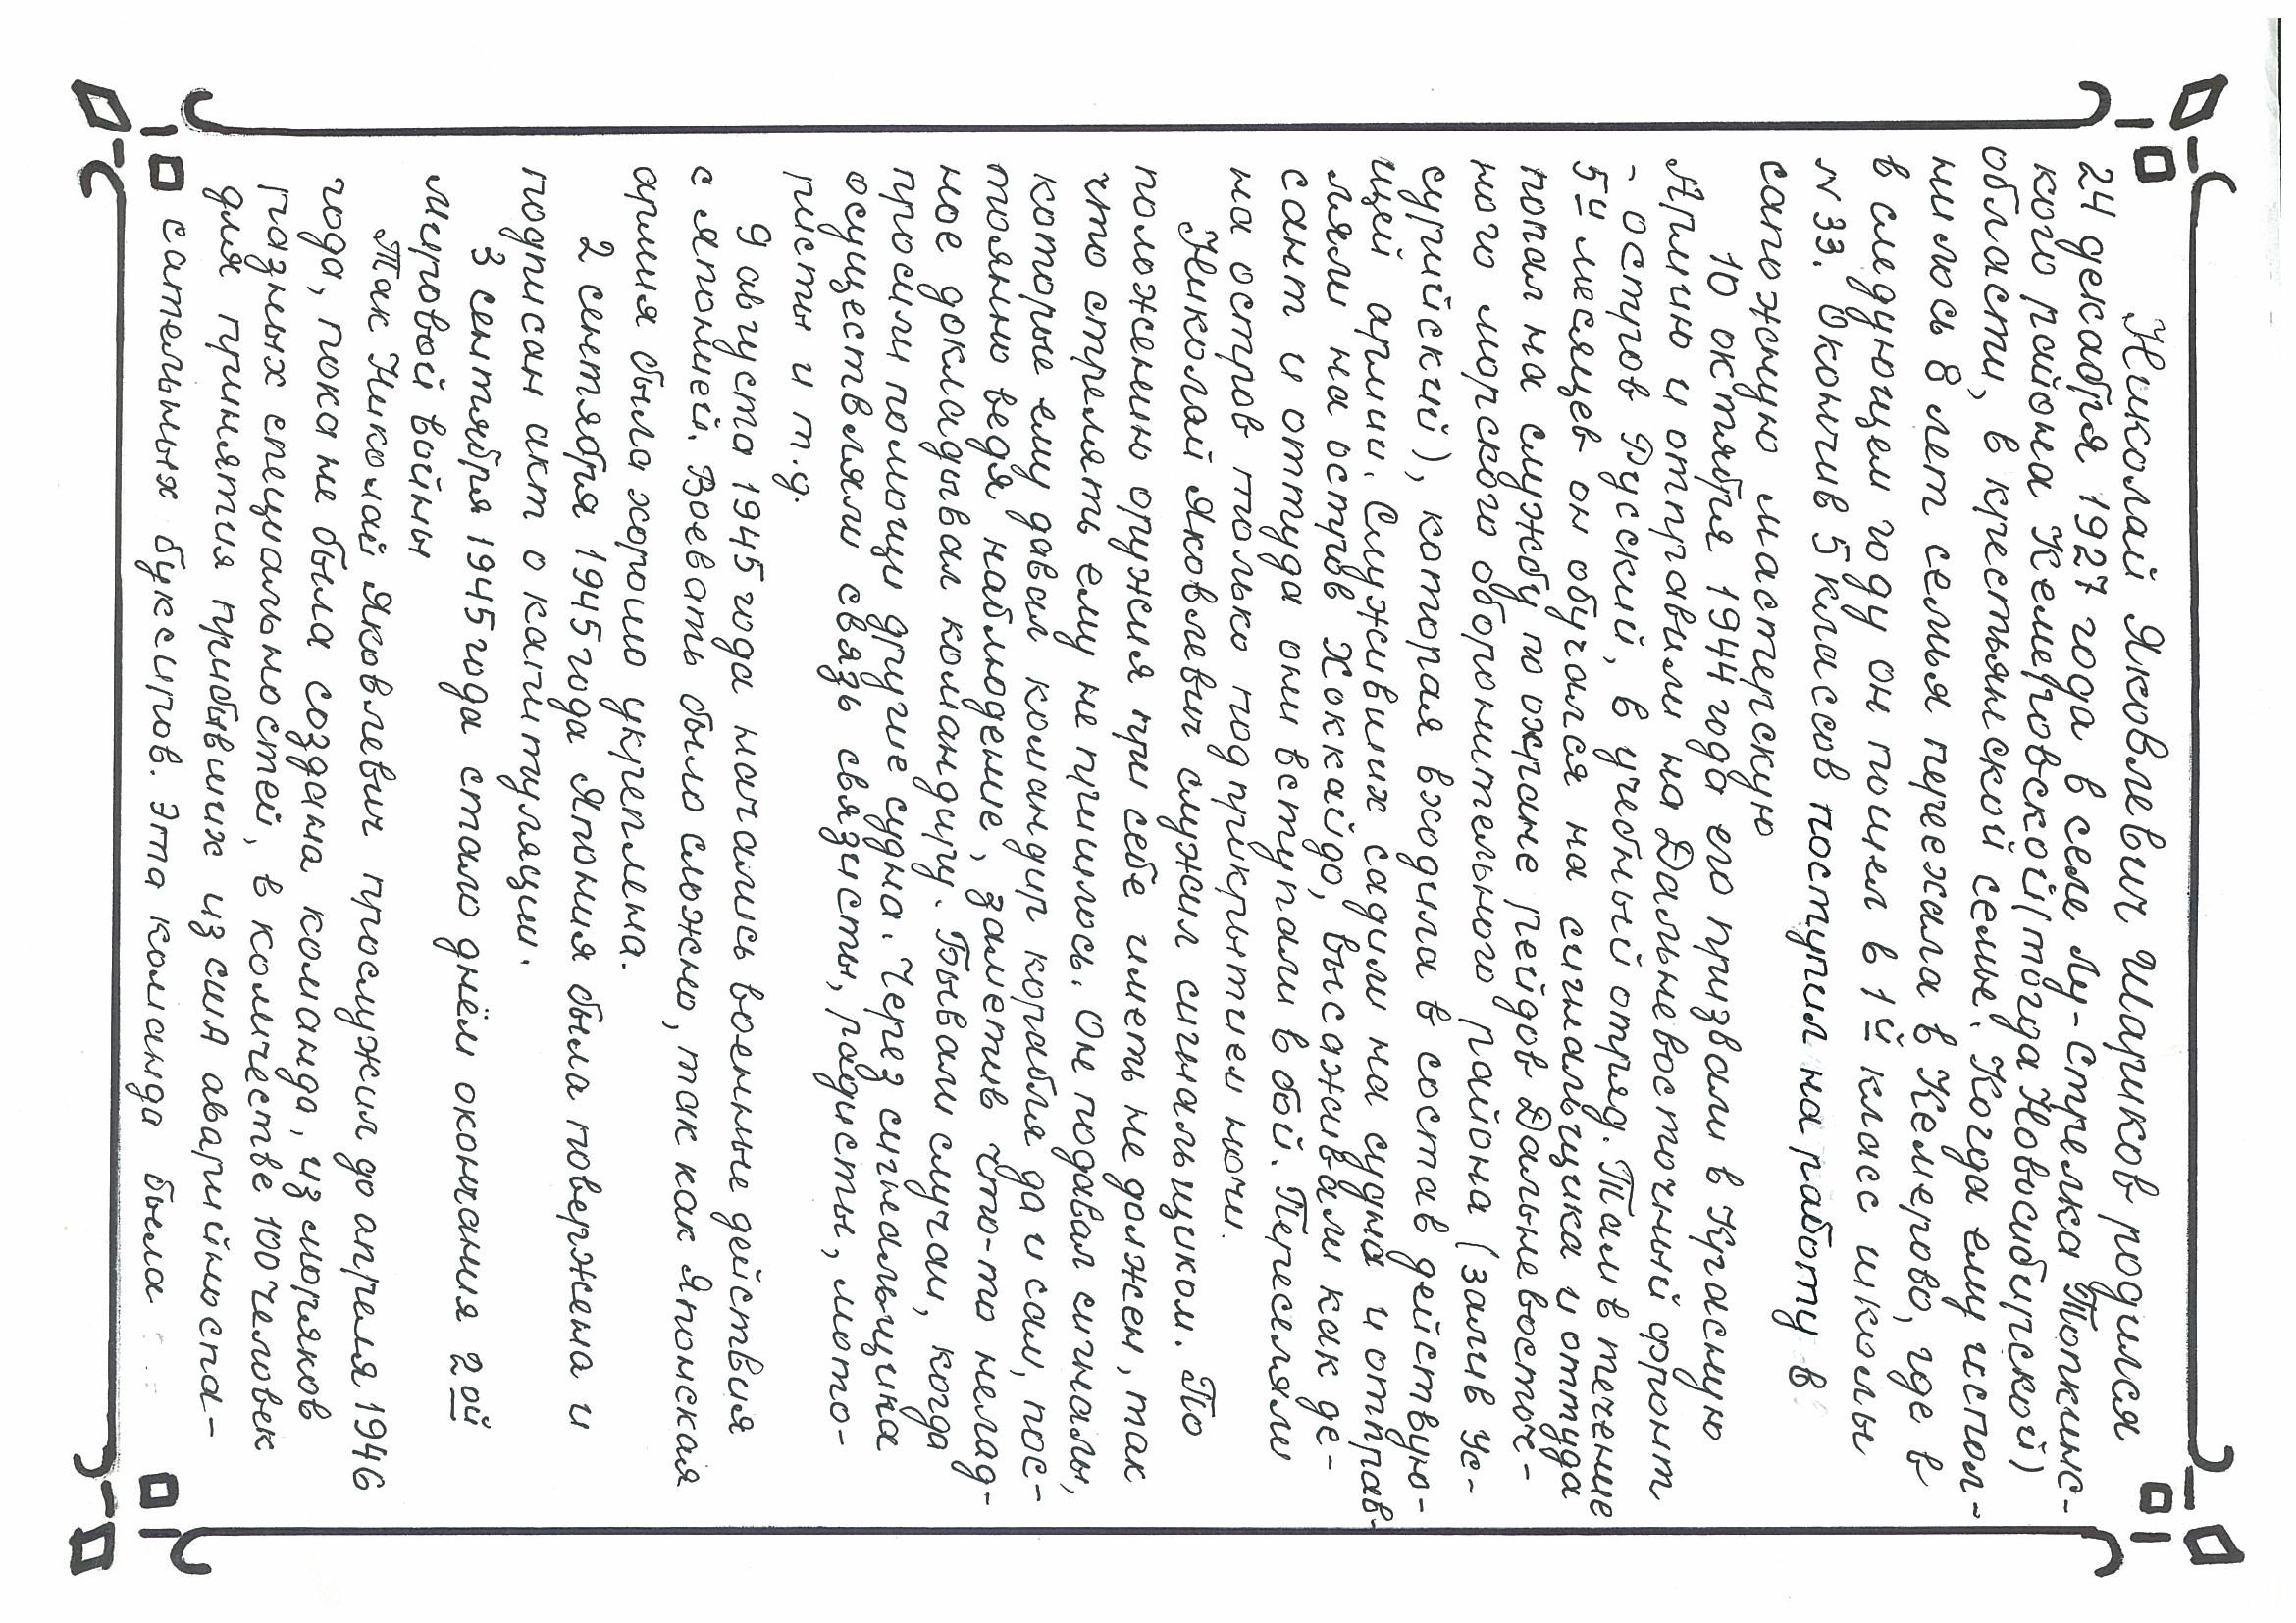 Николай Яковлевич Шариков родился
24 декабря 1927 года в селе Лу-Стрелка Топкинс-
кого района Кемеровской (тогда Новосибирской)
области, в крестьянской семье. Когда ему испол-
нилось 8 лет семья переехала в Кемерово, где в
в следующем году он пошел в 1й класс школы
N 33. Окончив 5 классов поступил на работу в
сапожную мастерскую
10 октября 1944 года его призвали в Красную
Армию и отправили на Дальневосточный фронт
- остров Русский, в учебный отряд. Там в течение
5и месяцев он обучался на сигнальщика и оттуда
попал на службу по охране рейдов Дальневосточ-
ного морского оборонительного района (залив Ус-
сурийский), которая входила в состав действую-
щей армии. Служивших садили на судна и отправ-
ляли на остров Хоккайдо, высаживали как де-
сант и оттуда они вступали в бой. Переселяли
на остров только под прикрытием ночи.
Николай Яковлевич служил сигнальщиком. По
положению оружия при себе иметь не должен, так
что стрелять ему не пришлось. Он подавал сигналы,
которые ему давал командир корабля да и сам, пос-
тоянно ведя наблюдение, заметив что-то нелад-
ное докладывал командиру. Бывали случаи, когда
просили помощи другие судна. Через сигнальщика
осуществляли связь связисты, радисты, мото-
ристы и т.д.
9 августа 1945 года начались военные действия
с Японией. Воевать было сложно, так как Японская
армия была хорошо укреплена.
2 сентября 1945 года Япония была повержена и
подписан акт о капитуляции.
3 сентября 1945 года стало днём окончания 2ой
Мировой войны
Так Николай Яковлевич прослужил до апреля 1946
года, пока не была создана команда, из моряков
разных специальностей, в количестве 100 человек
для принятия прибывших из США аварийноспа-
сательных буксиров. Эта команда была